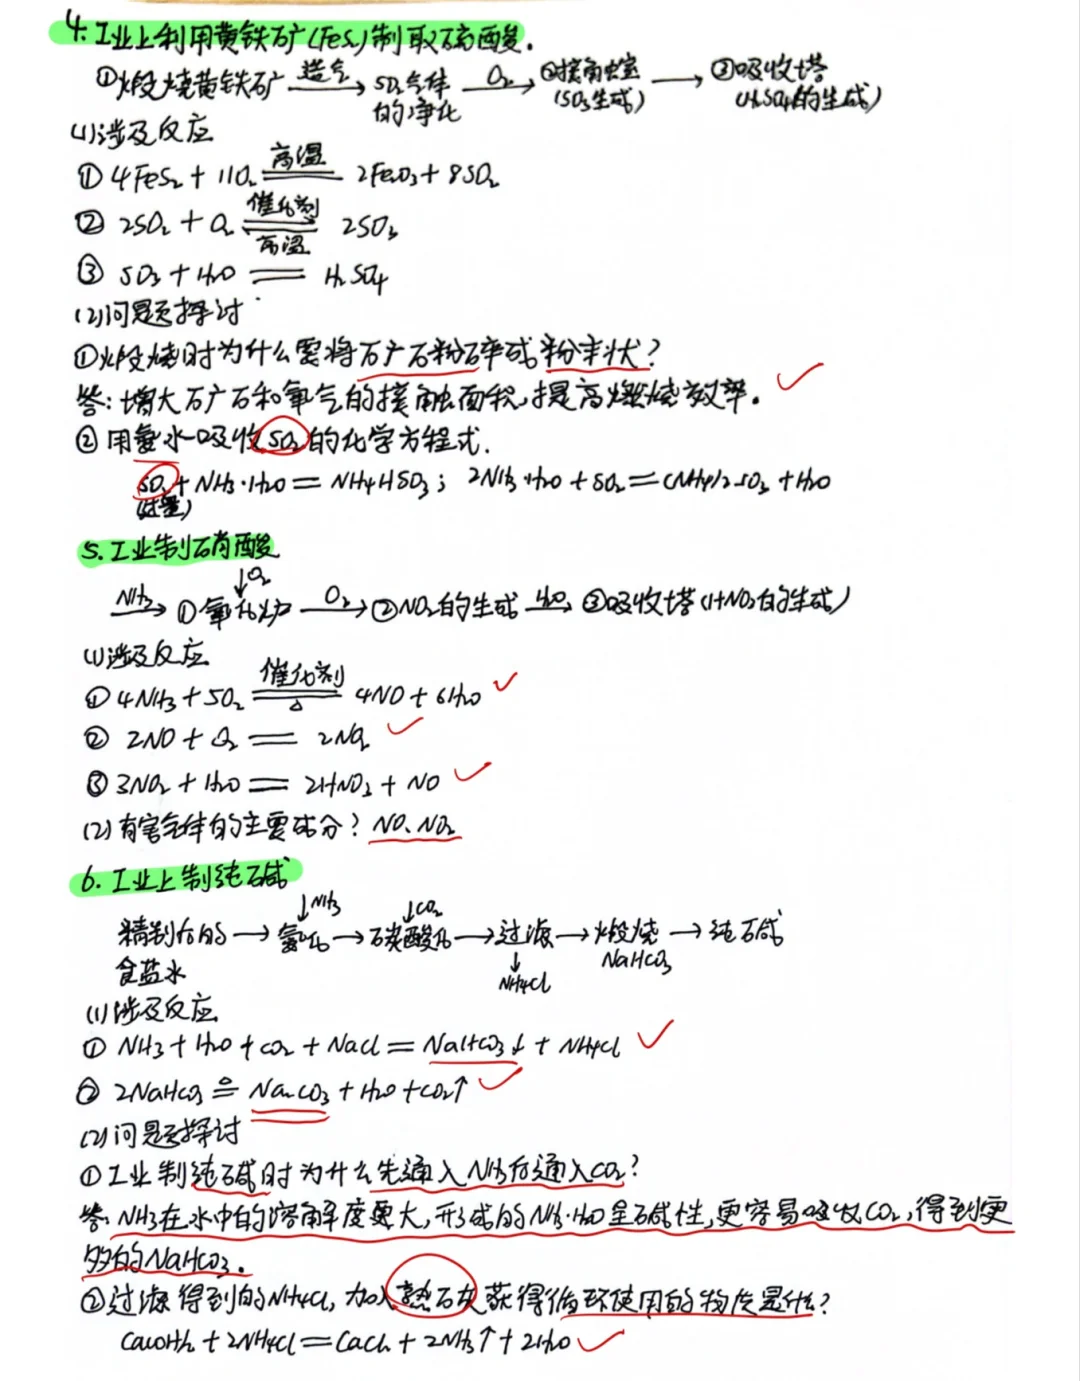 4.工业上利用黄铁矿(FeS₂)制取硫酸.
①煅烧黄铁矿 —造气→ SO₂气体的净化 —O₂→ ②接触室(SO₃生成) → ③吸收塔(H₂SO₄的生成)
(1)涉及反应
① 4FeS₂ + 11O₂ =高温= 2Fe₂O₃ + 8SO₂
② 2SO₂ + O₂ ⇌ 2SO₃ 催化剂 高温
③ SO₃ + H₂O = H₂SO₄
(2)问题探讨
①煅烧时为什么需将矿石粉碎成粉末状?
答:增大矿石和氧气的接触面积,提高燃烧效率.
②用氨水吸收SO₂的化学方程式.
SO₂ + NH₃·H₂O = NH₄HSO₃; 2NH₃·H₂O + SO₂ = (NH₄)₂SO₃ + H₂O
(过量)
5.工业制硝酸
—NH₃→ ①氧化炉 ↓O₂ —O₂→ ②NO₂的生成 —H₂O→ ③吸收塔(HNO₃的生成)
(1)涉及反应
① 4NH₃ + 5O₂ =催化剂 △= 4NO + 6H₂O
② 2NO + O₂ = 2NO₂
③ 3NO₂ + H₂O = 2HNO₃ + NO
(2)有害气体的主要成分? NO、NO₂
6.工业上制纯碱
↓NH₃ ↓CO₂
精制后的食盐水 → 氨化 → 碳酸化 → 过滤 → 煅烧NaHCO₃ → 纯碱
↓NH₄Cl
(1)涉及反应
① NH₃ + H₂O + CO₂ + NaCl = NaHCO₃↓ + NH₄Cl
② 2NaHCO₃ =△= Na₂CO₃ + H₂O + CO₂↑
(2)问题探讨
①工业制纯碱时为什么先通入NH₃后通入CO₂?
答:NH₃在水中的溶解度更大,形成的NH₃·H₂O呈碱性,更容易吸收CO₂,得到更
多的NaHCO₃.
②过滤得到的NH₄Cl,加入熟石灰获得循环使用的物质是什么?
Ca(OH)₂ + 2NH₄Cl = CaCl₂ + 2NH₃↑ + 2H₂O